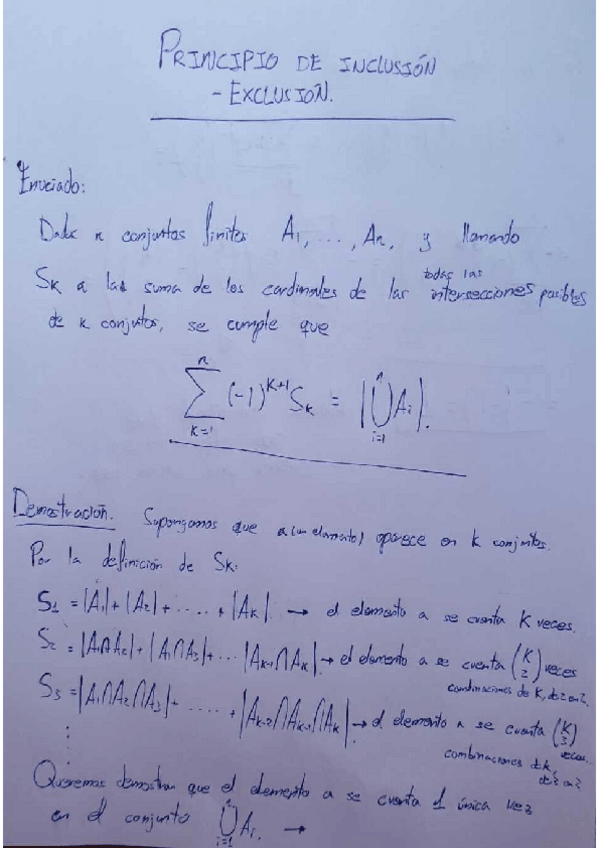 PRINCIPIO DE INCLUSIÓN
- EXCLUSIÓN.
Enuciado:
Dados n conjuntos finitos A1, ..., An, y llamando
Sk a las suma de los cardinales de las todas las intersecciones posibles
de k conjuntos, se cumple que
∑_{k=1}^{n} (-1)^{k+1} Sk = |⋃_{i=1}^{n} Ai|.
Demostración. Supongamos que a (un elemento) aparece en k conjuntos.
Por la definición de Sk:
S1 = |A1| + |A2| + ..... + |Ak| → el elemento a se cuenta K veces.
S2 = |A1∩A2| + |A1∩A3| + ... |Ak-1∩Ak| → el elemento a se cuenta (K 2) veces
combinaciones de K, de 2 en 2.
S3 = |A1∩A2∩A3| + ..... + |Ak-2∩Ak-1∩Ak| → el elemento a se cuenta (K 3) veces.
combinaciones de k, de 3 en 3
⋮
Queremos demostrar que el elemento a se cuenta 1 única vez
en el conjunto ⋃_{i=1}^{n} Ai. →